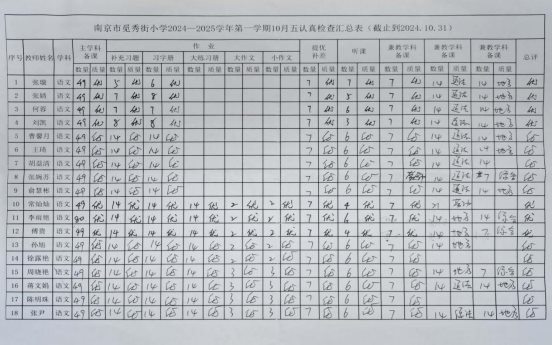 南京市觅秀街小学2024—2025学年第一学期10月五认真检查汇总表（截止到2024.10.31）
序号 教师姓名 学科 主学科备课 作 业 提优补差 听课 兼教学科备课 兼教学科备课 兼教学科备课 总评
补充习题 习字册 大练习册 大作文 小作文
数量 质量 数量 质量 数量 质量 数量 质量 数量 质量 数量 质量 数量 质量 数量 质量 数量 质量 数量 质量 数量 质量
1 张璇 语文 49 优 5 优 6 优 7 优 7 优 7 优 14 道法 14 地方 优
2 张婧 语文 49 优 7 优 8 优 7 优 5 优 7 优 14 道法 14 地方 优
3 何蓉 语文 49 优 7 优 8 优 7 优 6 优 7 优 14 道法 14 地方 优
4 刘凯 语文 49 优 8 优 8 优 7 优 3 优 7 优 14 道法 14 地方 优
5 曹馨月 语文 49 优 14 优 14 优 7 优 6 优 7 优 14 道法 14 地方 优
6 王琦 语文 49 优 14 优 14 优 7 优 6 优 7 优 14 道法 14 地方 优
7 胡益清 语文 49 优 14 优 14 优 7 优 6 优 7 优 14 道法 14 优
8 张婉苏 语文 49 优 14 优 14 优 7 优 6 优 7 14 道法 7 综合 优
9 俞慧彬 语文 49 优 14 优 14 优 7 优 6 优 7 优 14 道法 14 地方 优
10 常灿灿 语文 49 优 14 优 14 优 14 优 2 优 2 优 7 优 4 优 7 优 21 优
11 李雨艳 语文 50 优 14 优 14 优 14 优 2 优 2 优 7 优 6 优 7 优 14 地方 14 综合 优
12 傅蓉 语文 49 优 14 优 14 优 14 优 2 优 2 优 7 优 4 优 7 优 14 地方 7 综合 优
13 孙旭 语文 49 优 14 优 14 优 14 优 2 优 2 优 7 优 6 优 7 优 优
14 徐露艳 语文 49 优 14 优 14 优 14 优 2 优 2 优 7 优 6 优 7 优 优
15 周晓艳 语文 49 优 14 优 14 优 14 优 3 优 3 优 7 优 6 优 7 优 14 地方 7 综合 优
16 蒋文娟 语文 49 优 14 优 14 优 14 优 3 优 3 优 7 优 6 优 7 优 14 道法 14 地方 优
17 陈明珠 语文 49 优 14 优 14 优 14 优 3 优 3 优 7 优 6 优 7 优 优
18 张尹 语文 49 优 14 优 14 优 14 优 3 优 3 优 7 优 6 优 7 优 14 道法 14 地方 优